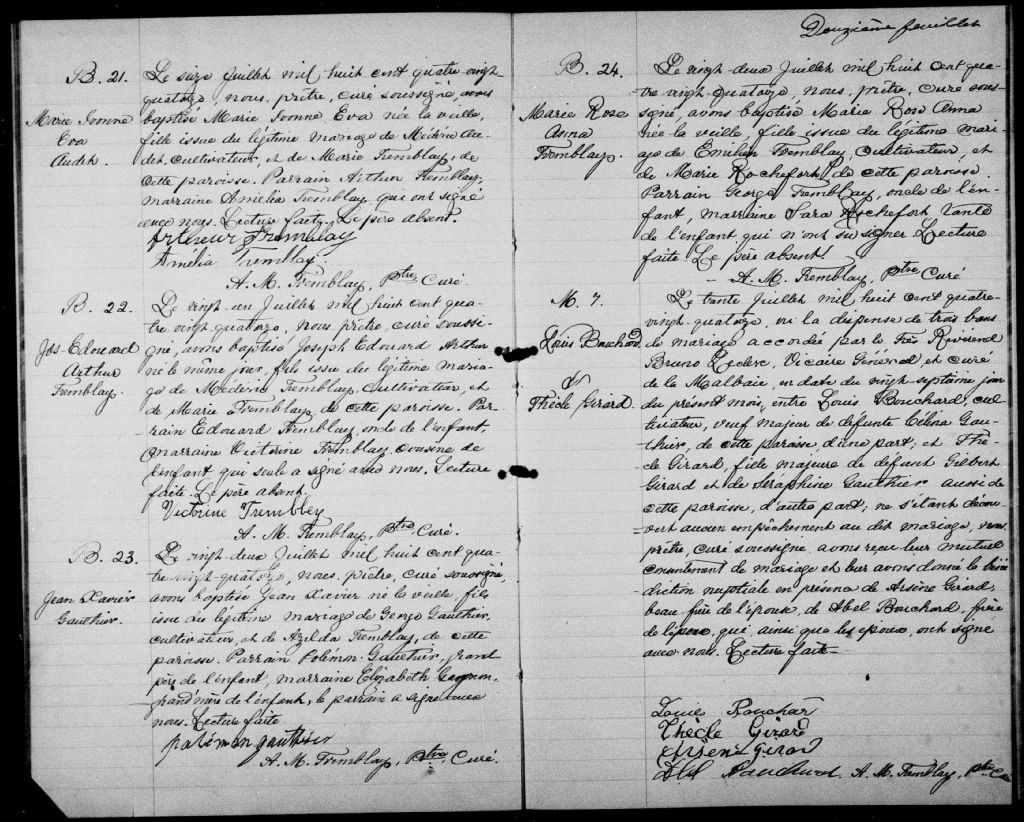 B. 21.
Marie Ivonne
Eva
Audet.
Le seize Juillet mil huit cent quatre-vingt
quatorze, nous, prêtre, curé soussigné, avons
baptisé Marie Ivonne Eva née la veille,
fille issue du légitime mariage de Médéric Au-
det, cultivateur, et de Marie Tremblay, de
cette paroisse. Parrain Arthur Tremblay,
marraine Amélia Tremblay, qui ont signé
avec nous. Lecture faite. Le père absent.
Artheur Tremblay
Amélia Tremblay.
A. M. Tremblay, Ptre, Curé.
B. 22.
Jos-Edouard
Arthur
Tremblay.
Le vingt-un Juillet mil huit cent qua-
tre vingt-quatorze, nous, prêtre, curé soussi-
gné, avons baptisé Joseph Edouard Arthur
né le même jour, fils issu du légitime maria-
ge de Médéric Tremblay, cultivateur, et
de Marie Tremblay, de cette paroisse. Par-
rain Edouard Tremblay, oncle de l'enfant,
marraine Victorine Tremblay, cousine de
l'enfant qui seule a signé avec nous. Lecture
faite. Le père absent.
Victorine Trembley
A. M. Tremblay, Ptre, Curé.
B. 23.
Jean Xavier
Gauthier.
Le vingt-deux Juillet mil huit cent qua-
tre-vingt-quatorze, nous, prêtre, curé soussigné,
avons baptisé Jean Xavier né la veille, fils
issu du légitime mariage de George Gauthier,
cultivateur, et de Azilda Tremblay, de cette
paroisse. Parrain Polémon Gauthier, grand
père de l'enfant, marraine Elizabeth
grand'mère de l'enfant, le parrain a signé avec
nous. Lecture faite
polémon gauthier
A. M. Tremblay, Ptre, Curé.
Douzième feuillet
B. 24.
Marie Rose
Anna
Tremblay.
Le vingt-deux Juillet mil huit cent qua-
tre vingt-quatorze, nous, prêtre, curé sous-
signé, avons baptisé Marie Rose Anna
née la veille, fille issue du légitime mari-
age de Emilien Tremblay, cultivateur, et
de Marie Rochefort, de cette paroisse.
Parrain George Tremblay, oncle de l'en-
fant, marraine Sara Rochefort tante
de l'enfant qui n'ont su signer. Lecture
faite. Le père absent.
A. M. Tremblay, Ptre Curé
M. 7.
Louis Bouchard
&
Thècle Girard.
Le trente Juillet mil huit cent quatre-
vingt-quatorze, vu la dispense de trois bans
de mariage accordée par le Très Révérend
Bruno Leclerc, Vicaire Général, et curé
de la Malbaie, en date du vingt septième jour
du présent mois, entre Louis Bouchard, cul-
tivateur, veuf majeur de défunte Célina Gau-
thier, de cette paroisse, d'une part; et Thè-
cle Girard, fille majeure de défunt Gilbert
Girard et de Séraphine Gauthier aussi de
cette paroisse, d'autre part; ne s'étant décou-
vert aucun empêchement au dit mariage, nous
prêtre, curé soussigné, avons reçu leur mutuel
consentement de mariage et leur avons donné la béné
diction nuptiale en présence de Arsène Girard,
beau-frère de l'époux, de Abel Bouchard, frère
de l'époux, qui, ainsi que les époux, ont signé
avec nous. Lecture faite-
Louis Bouchar
Thècle Girard
Arsène Girar
Abel Bouchard A. M. Tremblay, Ptre Curé